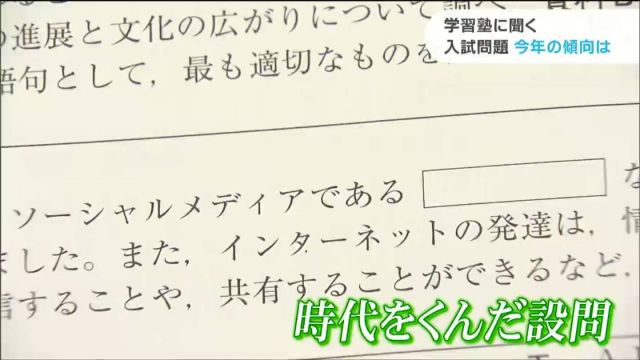 学習塾に聞く
入試問題 今年の傾向は
の進展と文化の広がりについて
語句として，最も適切なものを
ソーシャルメディアである
な
ました。また，インターネットの発達は，情
信することや，共有することができるなど，
時代をくんだ設問